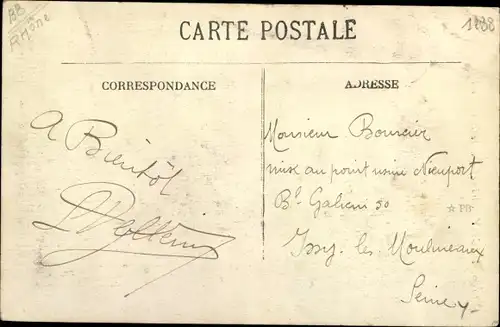 BB
Rhône
1288
CARTE POSTALE
CORRESPONDANCE
ADRESSE
A Bientôt
Monsieur Boursier
mise au point usine Nieuport
Bd Galieni 30
☆ PB
Issy les Moulineaux
Seine